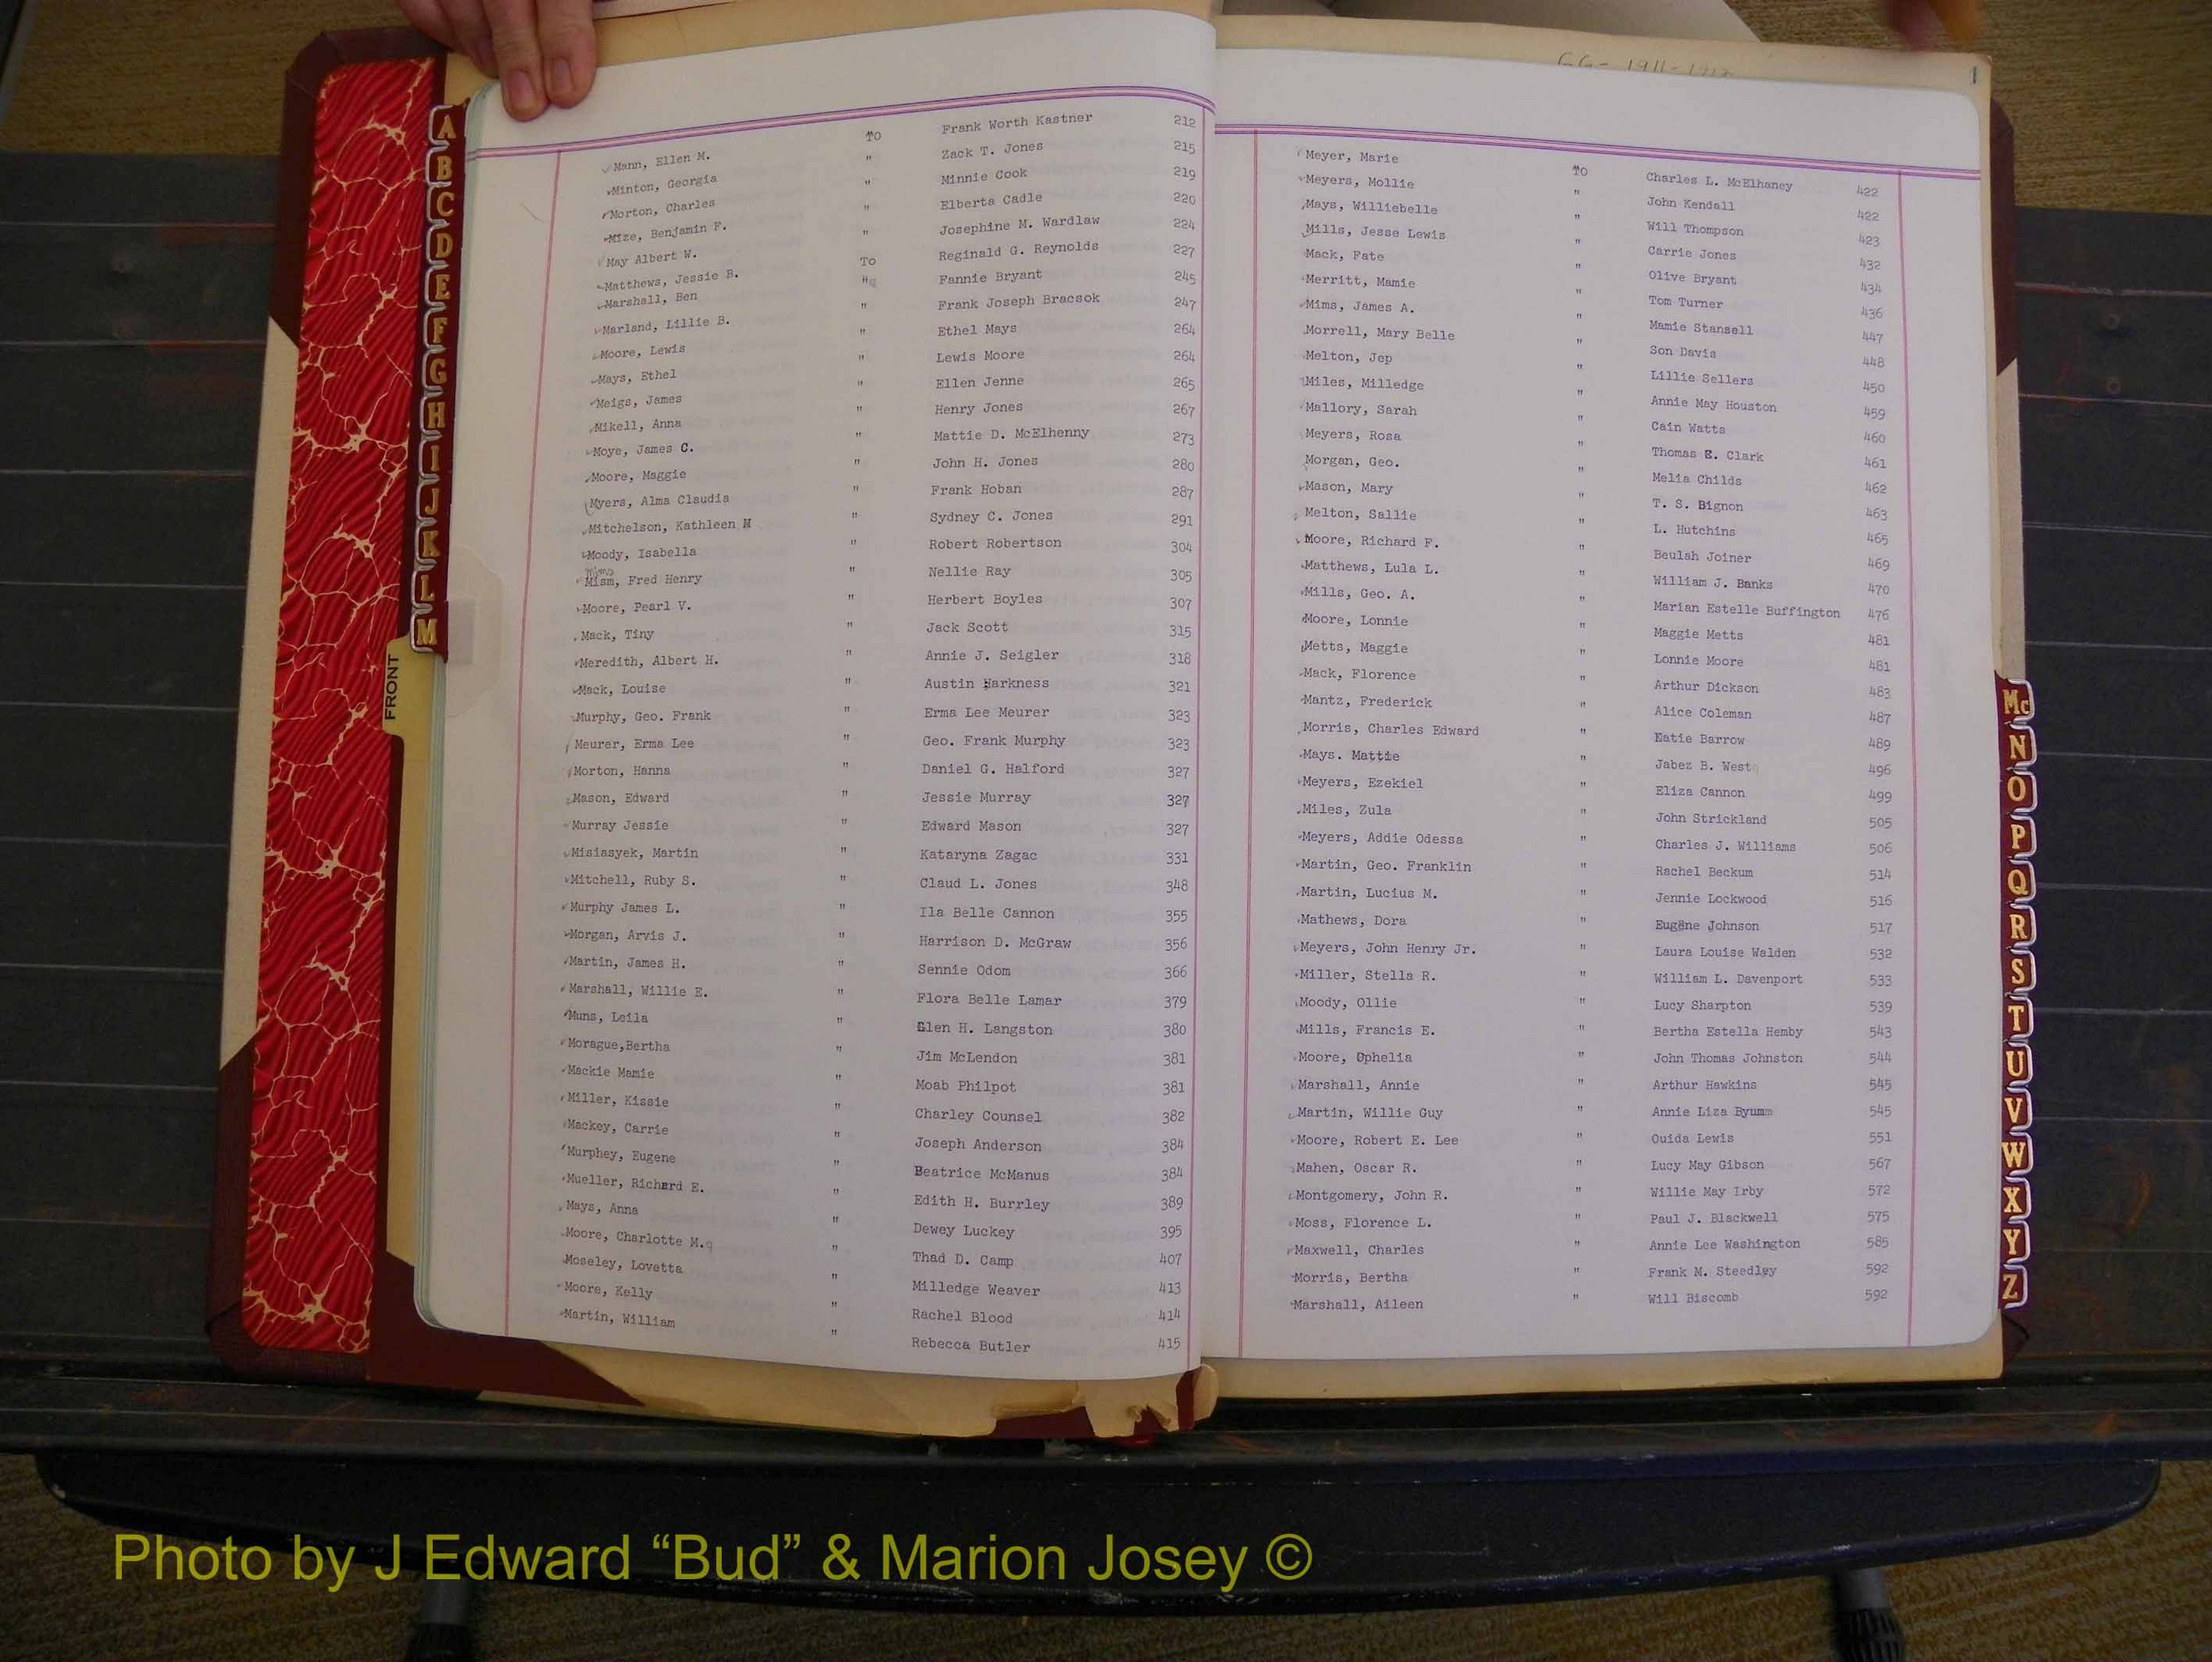 GG- 1911-1912
Mann, Ellen M. TO Frank Worth Kastner 212
Minton, Georgia " Zack T. Jones 215
Morton, Charles " Minnie Cook 219
Mize, Benjamin F. " Elberta Cadle 220
May Albert W. " Josephine M. Wardlaw 224
Matthews, Jessie B. To Reginald G. Reynolds 227
Marshall, Ben " Fannie Bryant 245
Marland, Lillie B. " Frank Joseph Bracsok 247
Moore, Lewis " Ethel Mays 264
Mays, Ethel " Lewis Moore 264
Meigs, James " Ellen Jenne 265
Mikell, Anna " Henry Jones 267
Moye, James C. " Mattie D. McElhenny 273
Moore, Maggie " John H. Jones 280
Myers, Alma Claudia " Frank Hoban 287
Mitchelson, Kathleen M " Sydney C. Jones 291
Moody, Isabella " Robert Robertson 304
Mims
Mism, Fred Henry " Nellie Ray 305
Moore, Pearl V. " Herbert Boyles 307
Mack, Tiny " Jack Scott 315
Meredith, Albert H. " Annie J. Seigler 318
Mack, Louise " Austin Harkness 321
Murphy, Geo. Frank " Erma Lee Meurer 323
Meurer, Erma Lee " Geo. Frank Murphy 323
Morton, Hanna " Daniel G. Halford 327
Mason, Edward " Jessie Murray 327
Murray Jessie " Edward Mason 327
Misiasyek, Martin " Kataryna Zagac 331
Mitchell, Ruby S. " Claud L. Jones 348
Murphy James L. " Ila Belle Cannon 355
Morgan, Arvis J. " Harrison D. McGraw 356
Martin, James H. " Sennie Odom 366
Marshall, Willie E. " Flora Belle Lamar 379
Muns, Leila " Glen H. Langston 380
Morague,Bertha " Jim McLendon 381
Mackie Mamie " Moab Philpot 381
Miller, Kissie " Charley Counsel 382
Mackey, Carrie " Joseph Anderson 384
Murphey, Eugene " Beatrice McManus 384
Mueller, Richard E. " Edith H. Burrley 389
Mays, Anna " Dewey Luckey 395
Moore, Charlotte M. " Thad D. Camp 407
Moseley, Lovetta " Milledge Weaver 413
Moore, Kelly " Rachel Blood 414
Martin, William " Rebecca Butler 415
Meyer, Marie TO Charles L. McElhaney 422
Meyers, Mollie " John Kendall 422
Mays, Williebelle " Will Thompson 423
Mills, Jesse Lewis " Carrie Jones 432
Mack, Fate " Olive Bryant 434
Merritt, Mamie " Tom Turner 436
Mims, James A. " Mamie Stansell 447
Morrell, Mary Belle " Son Davis 448
Melton, Jep " Lillie Sellers 450
Miles, Milledge " Annie May Houston 459
Mallory, Sarah " Cain Watts 460
Meyers, Rosa " Thomas E. Clark 461
Morgan, Geo. " Melia Childs 462
Mason, Mary " T. S. Bignon 463
Melton, Sallie " L. Hutchins 465
Moore, Richard F. " Beulah Joiner 469
Matthews, Lula L. " William J. Banks 470
Mills, Geo. A. " Marian Estelle Buffington 476
Moore, Lonnie " Maggie Metts 481
Metts, Maggie " Lonnie Moore 481
Mack, Florence " Arthur Dickson 483
Mantz, Frederick " Alice Coleman 487
Morris, Charles Edward " Katie Barrow 489
Mays. Mattie " Jabez B. West 496
Meyers, Ezekiel " Eliza Cannon 499
Miles, Zula " John Strickland 505
Meyers, Addie Odessa " Charles J. Williams 506
Martin, Geo. Franklin " Rachel Beckum 514
Martin, Lucius M. " Jennie Lockwood 516
Mathews, Dora " Eugene Johnson 517
Meyers, John Henry Jr. " Laura Louise Walden 532
Miller, Stella R. " William L. Davenport 533
Moody, Ollie " Lucy Sharpton 539
Mills, Francis E. " Bertha Estella Hemby 543
Moore, Ophelia " John Thomas Johnston 544
Marshall, Annie " Arthur Hawkins 545
Martin, Willie Guy " Annie Liza Byumm 545
Moore, Robert E. Lee " Ouida Lewis 551
Mahen, Oscar R. " Lucy May Gibson 567
Montgomery, John R. " Willie May Irby 572
Moss, Florence L. " Paul J. Blackwell 575
Maxwell, Charles " Annie Lee Washington 585
Morris, Bertha " Frank M. Steedley 592
Marshall, Aileen " Will Biscomb 592
A
B
C
D
E
F
G
H
I
J
K
L
M
FRONT
Mc
N
O
P
Q
R
S
T
U
V
W
X
Y
Z
Photo by J Edward “Bud” & Marion Josey ©